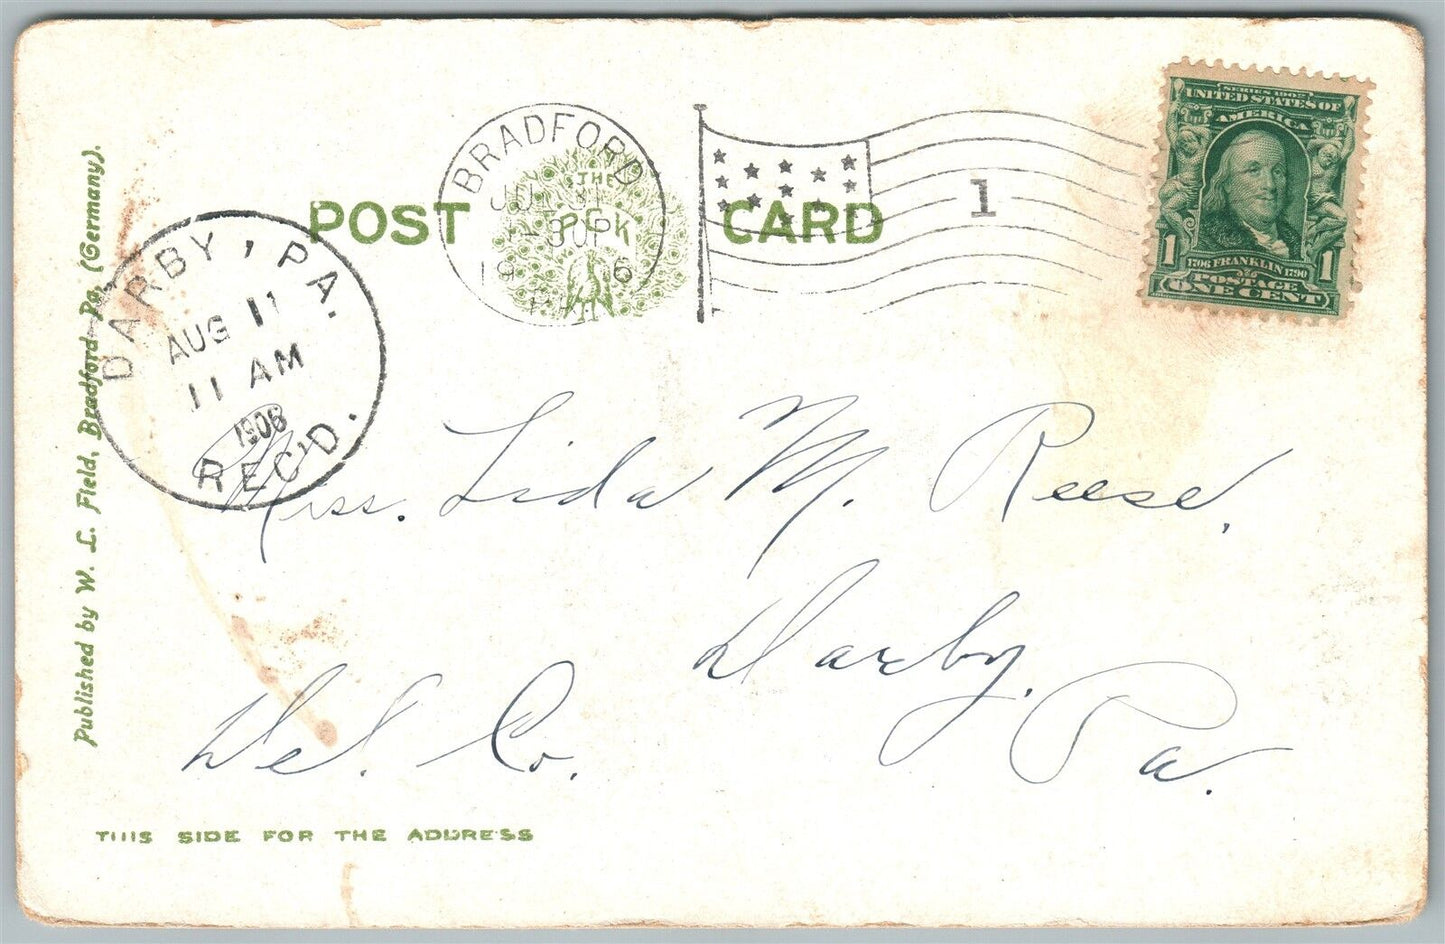 POST CARD
THE
P.C.K
BRADFORD
JUL 31
30P
1906
1
SERIES 1902
UNITED STATES OF
AMERICA
1706 FRANKLIN 1790
1 1
POSTAGE
ONE CENT
DARBY, PA.
AUG 11
11 AM
1906
REC'D.
Published by W. L. Field, Bradford Pa. (Germany).
Miss. Lida M. Reese,
Darby,
Del. Co. Pa.
THIS SIDE FOR THE ADDRESS